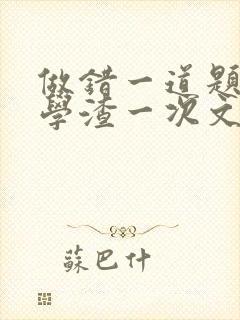 做錯一道題
學渣一次文
蘇巴什